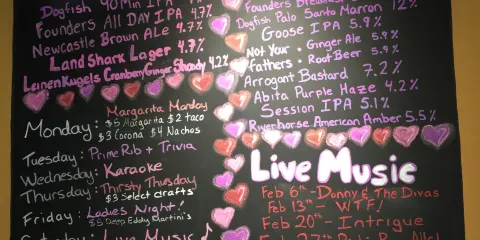 Dogfish 90 Min IPA
Founders All DAY IPA 4.7%
Newcastle Brown Ale 4.7%
Land Shark Lager 4.7%
Leinenkugels Cranberry Ginger Shandy 4.2%
Monday: Margarita Monday
$5 Margarita $2 taco
$3 Corona $4 Nachos
Tuesday: Prime Rib + Trivia
Wednesday: Karaoke
Thursday: Thirsty Thursday
$3 Select drafts
Friday: Ladies Night!
$5 Deep Eddy Martini's
Live Music
Founders Breakfast
Dogfish Palo Santo Marron 12%
Goose IPA 5.9%
Not Your Fathers • Ginger Ale 5.9%
• Root Beer 5.9%
Arrogant Bastard 7.2%
Abita Purple Haze 4.2%
Session IPA 5.1%
Riverhorse American Amber 5.5%
Live Music
Feb 6th - Donny & The Divas
Feb 13th - WTF!
Feb 20th - Intrigue